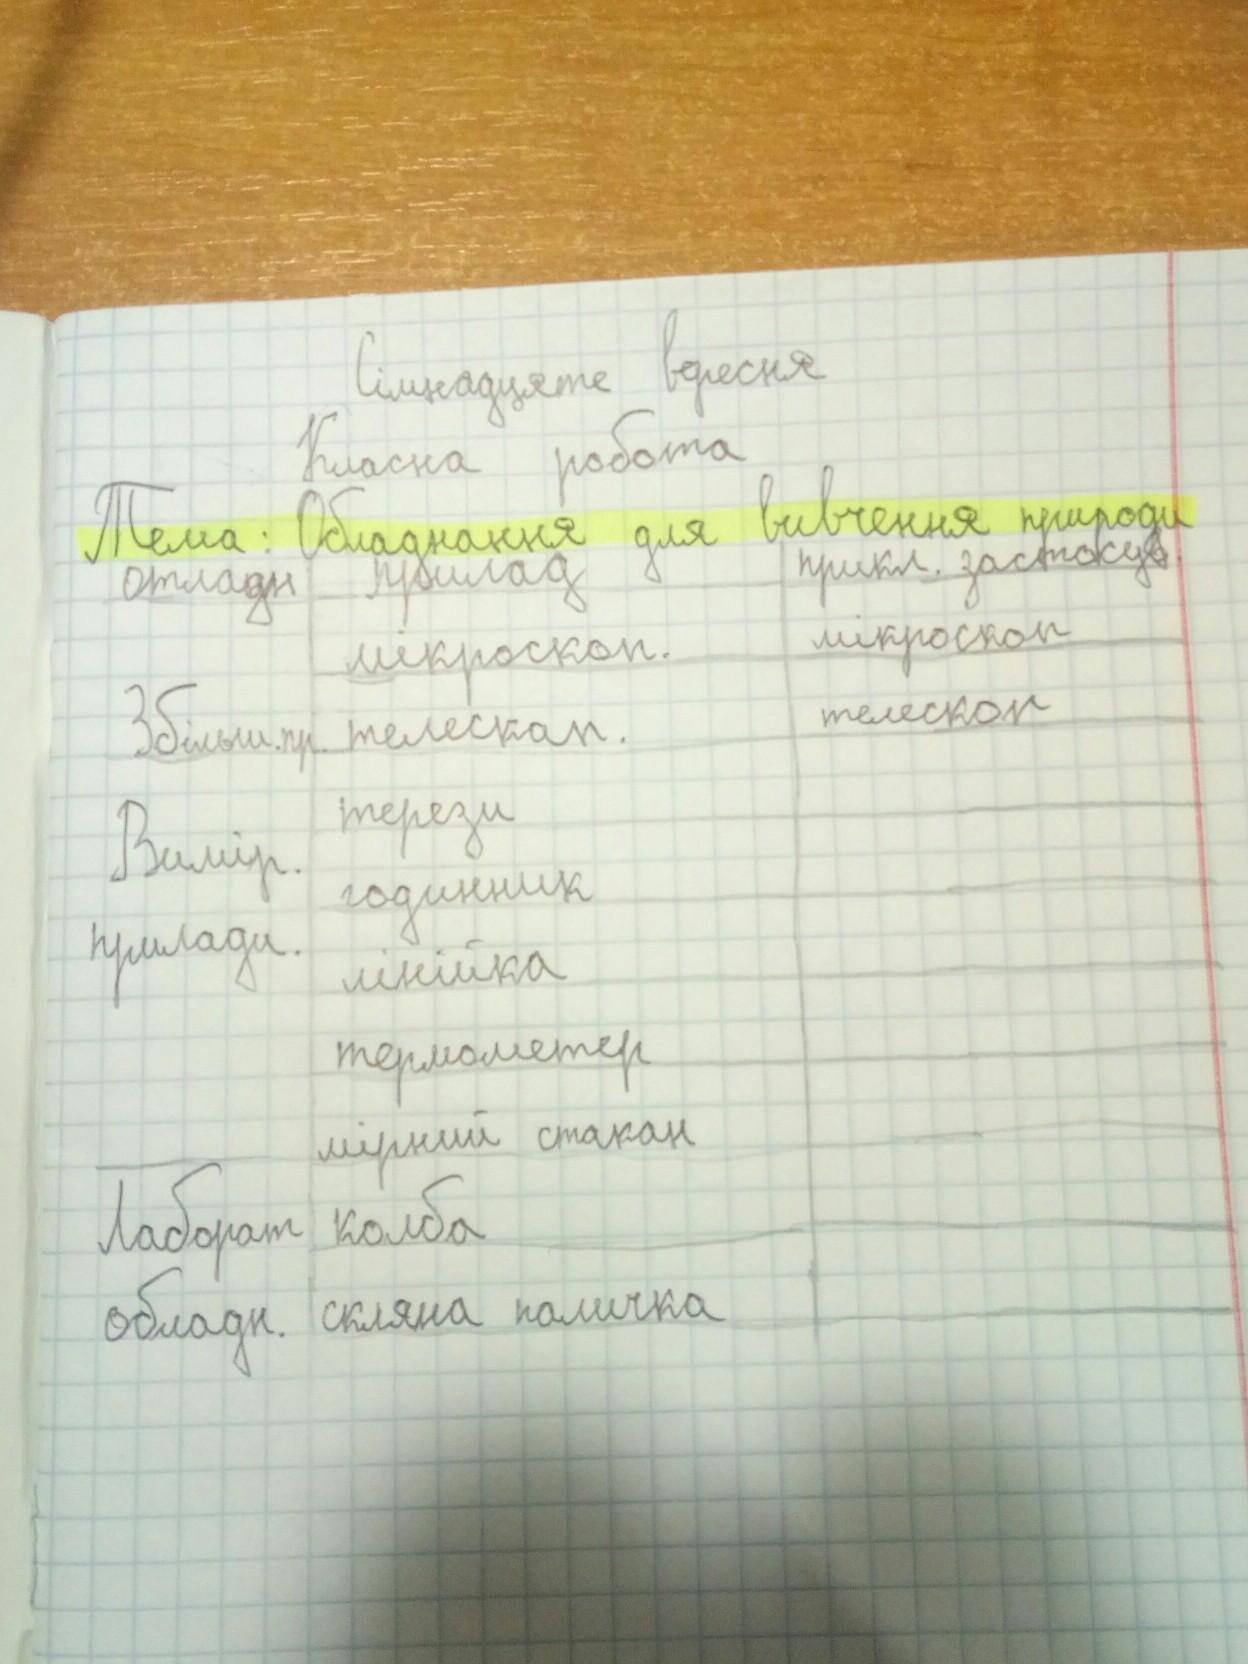 Сімнадцяте вересня
Класна робота
Тема: Обладнання для вивчення природи
отладн прилад прикл. застокув.
мікроскоп. мікроскоп
Збільш.пр. телескап. телескоп
терези
Вимір.
годинник
прилади.
лінійка
термометер
мірний стакан
Лаборат колба
обладн. скляна паличка